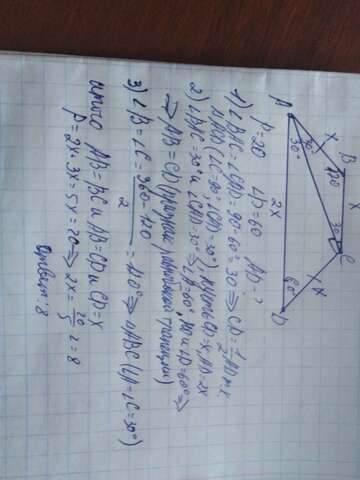 P=20 ∠D=60 AD-?
1) ∠BAC=∠CAD=90-60=30° ⇒ CD=½AD=x
ΔACD (∠C=90°, ∠CAD=30°), пусть CD=x, AD=2x
2) ∠BAC=30° и ∠CAD=30° ⇒ ∠A=60°, но и ∠D=60° ⇒
⇒ AB=CD (трапеции)
3) ∠B=∠C=(360-120)/2=120° ⇒ ΔABC (∠A=∠C=30°)
итого AB=BC и AB=CD и CD=x
P=2x+3x=5x=20 ⇒ 2x=20/5·2=8
Ответ: 8
A
B
C
D
x
x
x
2x
30°
30°
30°
120°
60°